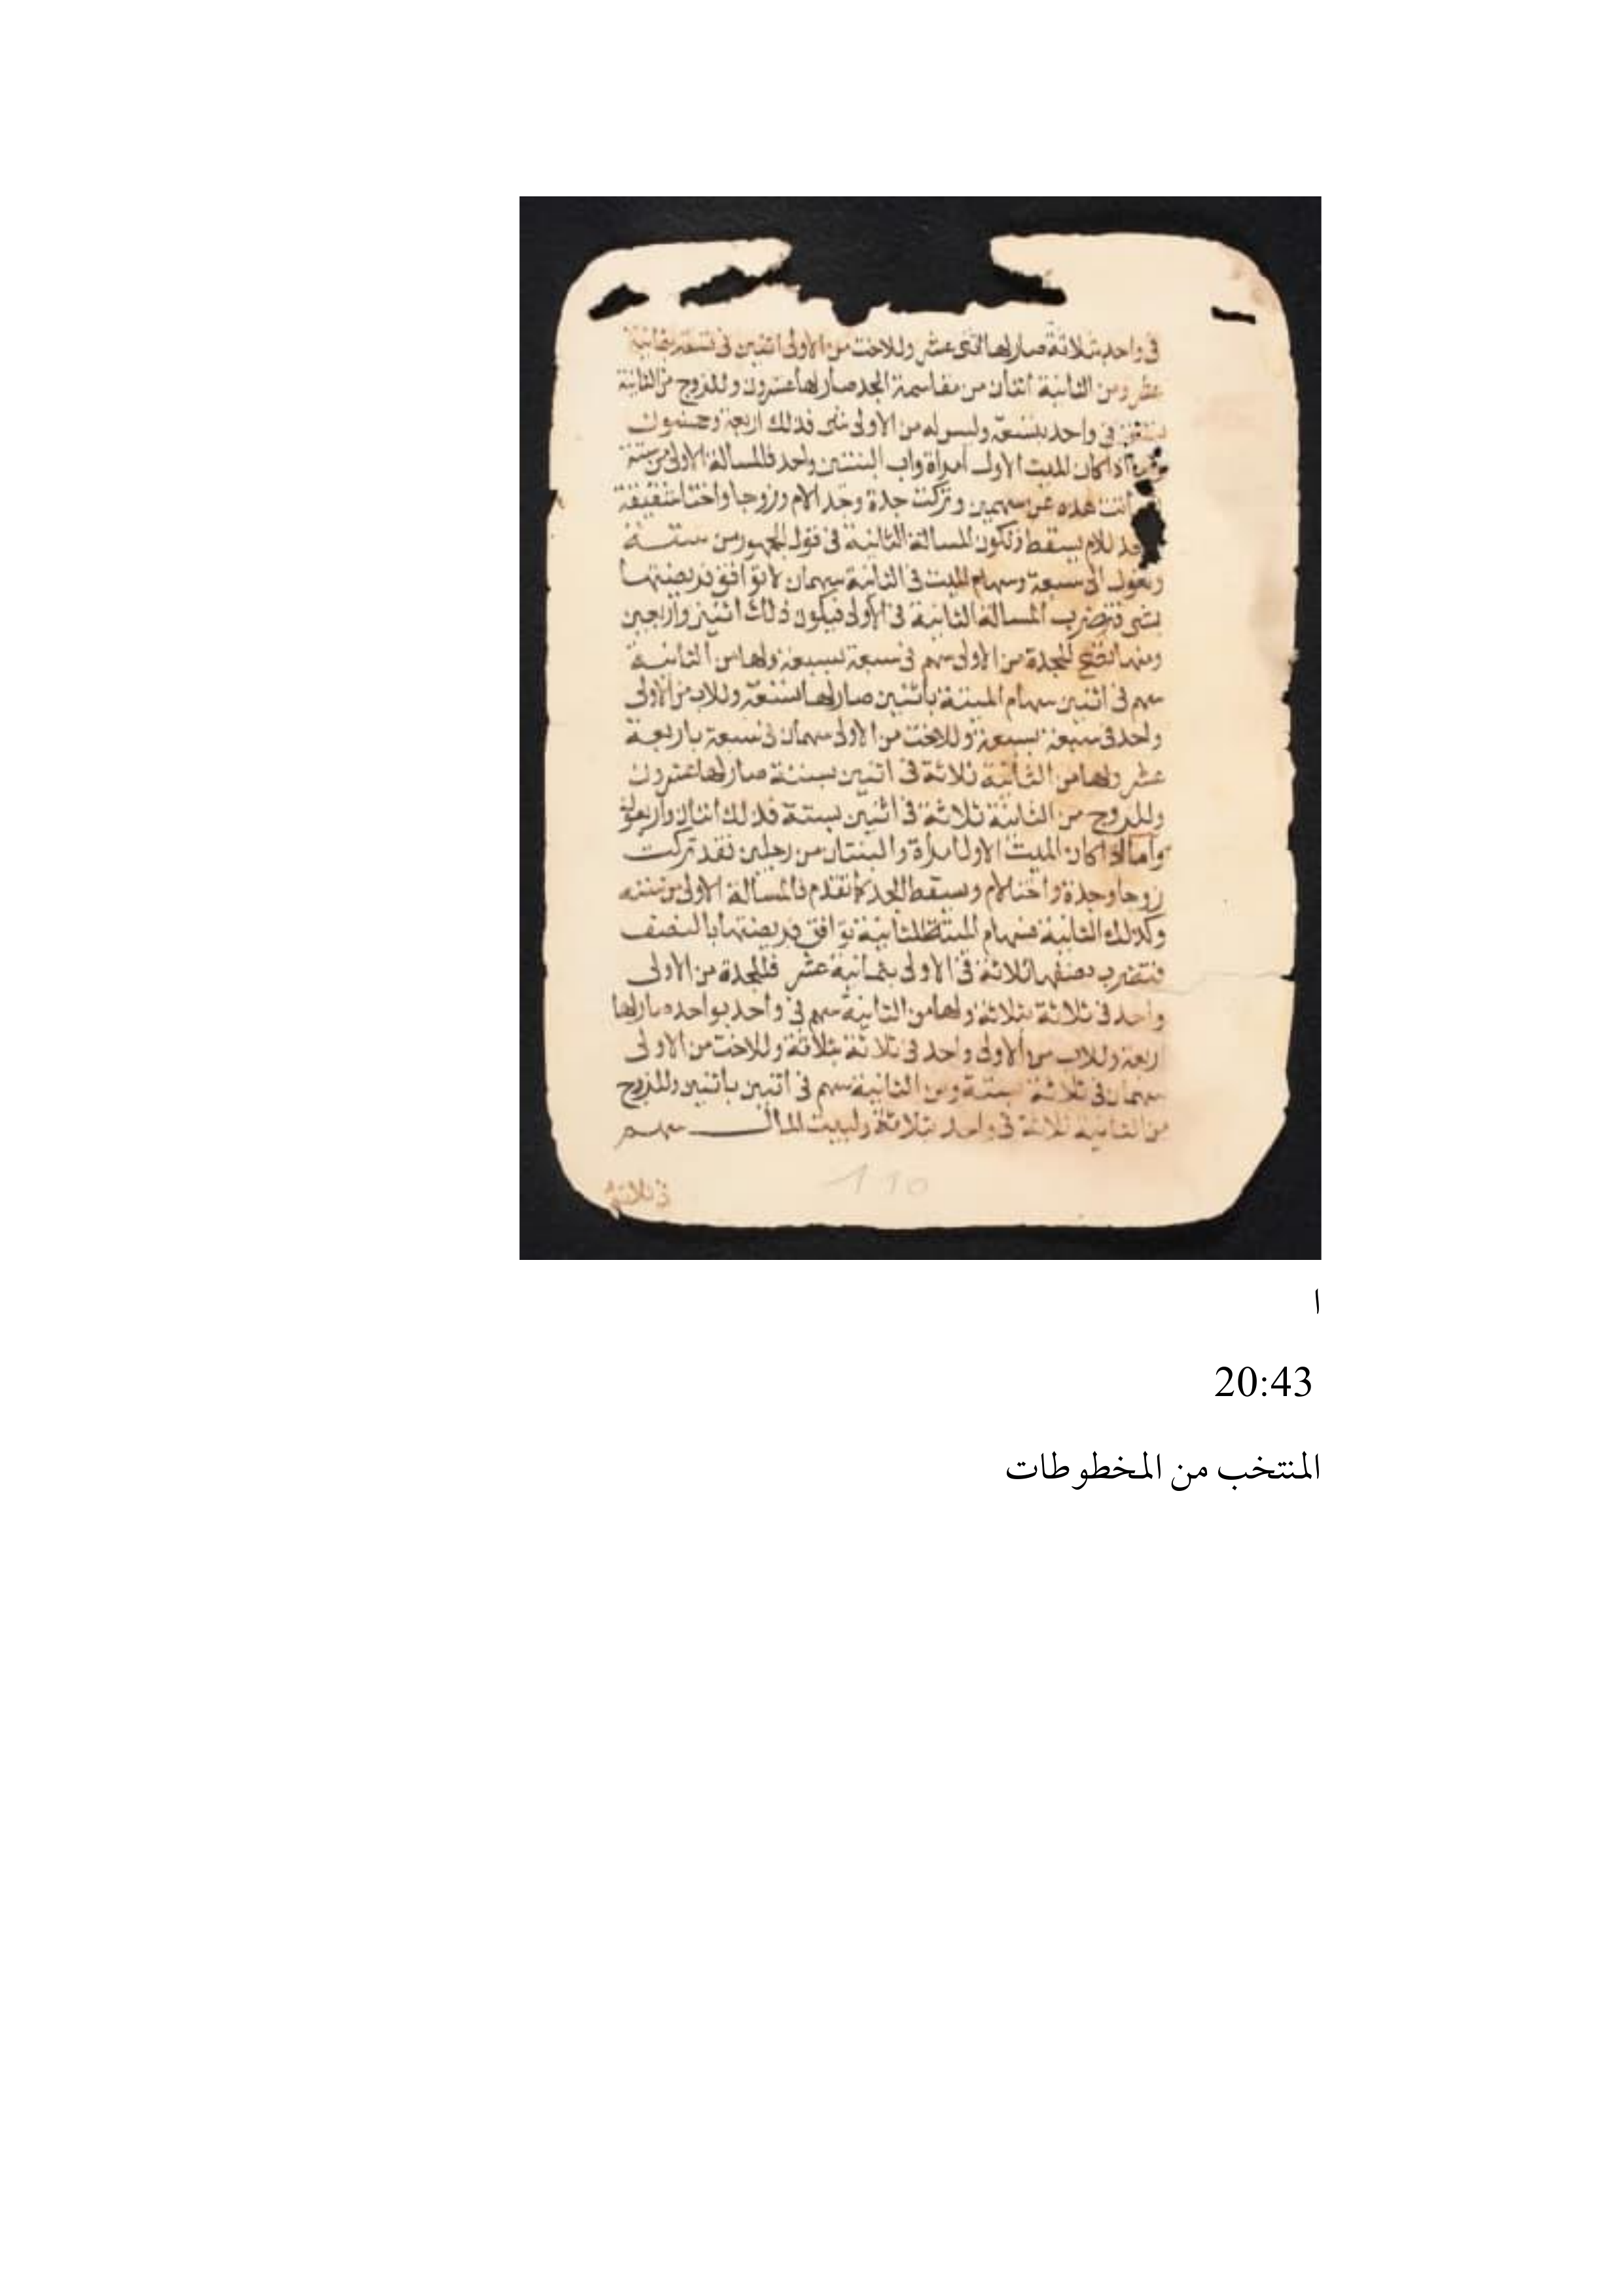 في واحد بثلاثة صار لها اثنى عشر وللاخت من الاولى اثنين في تسعة بثمانية
عشر ومن الثانية اثنان من مقاسمة الجد صار لها عشرون وللزوج من الثانية
في واحد بتسعة وليس له من الاولى شي فذلك اربعة وخمسون
اذا كان الميت الاول امراة واب البنتين واحد فالمسالة الاولى من ستة
هذه عن سهمين وتركت جدة وجد الام وزوجا واختا شقيقة
للام يسقط وتكون المسالة الثانية في قول الجمهور من ستة
وتعول الى سبعة وسهام الميت في الثانية سهمان لا توافق فريضتها
بشي فتضرب المسالة الثانية في الاولى فيكون ذلك اثنين واربعين
ومنها تصح للجدة من الاولى سهم في سبعة بسبعة ولها من الثانية
سهم في اثنين سهام الميتة باثنين صار لها تسعة وللاب من الاولى
واحد في سبعة بسبعة وللاخت من الاولى سهمان في سبعة باربعة
عشر ولها من الثانية ثلاثة في اثنين بستة صار لها عشرون
وللزوج من الثانية ثلاثة في اثنين بستة فذلك اثنان واربعون
واما اذا كان الميت الاول امراة والبنتان من رجلين فقد تركت
زوجا وجدة واختا لام ويسقط الجد كما تقدم فالمسالة الاولى من ستة
وكذلك الثانية فسهام الميتة الثانية توافق فريضتها بالنصف
فتضرب نصفها ثلاثة في الاولى بثمانية عشر فللجدة من الاولى
واحد في ثلاثة بثلاثة ولها من الثانية سهم في واحد بواحد صار لها
اربعة وللاب من الاولى واحد في ثلاثة بثلاثة وللاخت من الاولى
سهمان في ثلاثة بستة ومن الثانية سهم في اثنين باثنين وللزوج
من الثانية ثلاثة في واحد بثلاثة ولبيت المال سهم
في ثلاثة
110
ا
20:43
المنتخب من المخطوطات